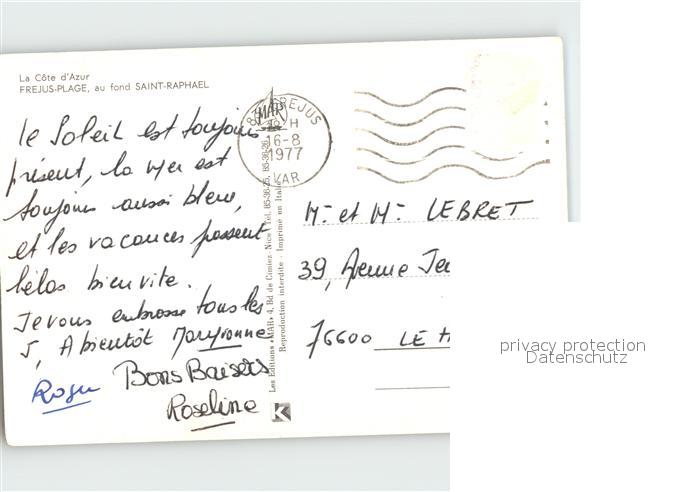 La Côte d'Azur
FREJUS-PLAGE, au fond SAINT-RAPHAEL
le Soleil est toujours
présent, la mer est
toujours aussi bleue,
et les vacances passent
hélas bien vite.
Je vous embrasse tous les
5, A bientôt Maryvonne
Bons Baisers
Roger
Roseline
83 FREJUS
18 H
16-8
1977
VAR
MAR
Les Editions «MAR» 4, Bd de Cimiez - Nice - Tél. 85-36-25, 85-36-26
Reproduction interdite - Imprimé en Italie
K
Mr et Me LEBRET
39, Avenue
76600 LE
privacy protection
Datenschutz